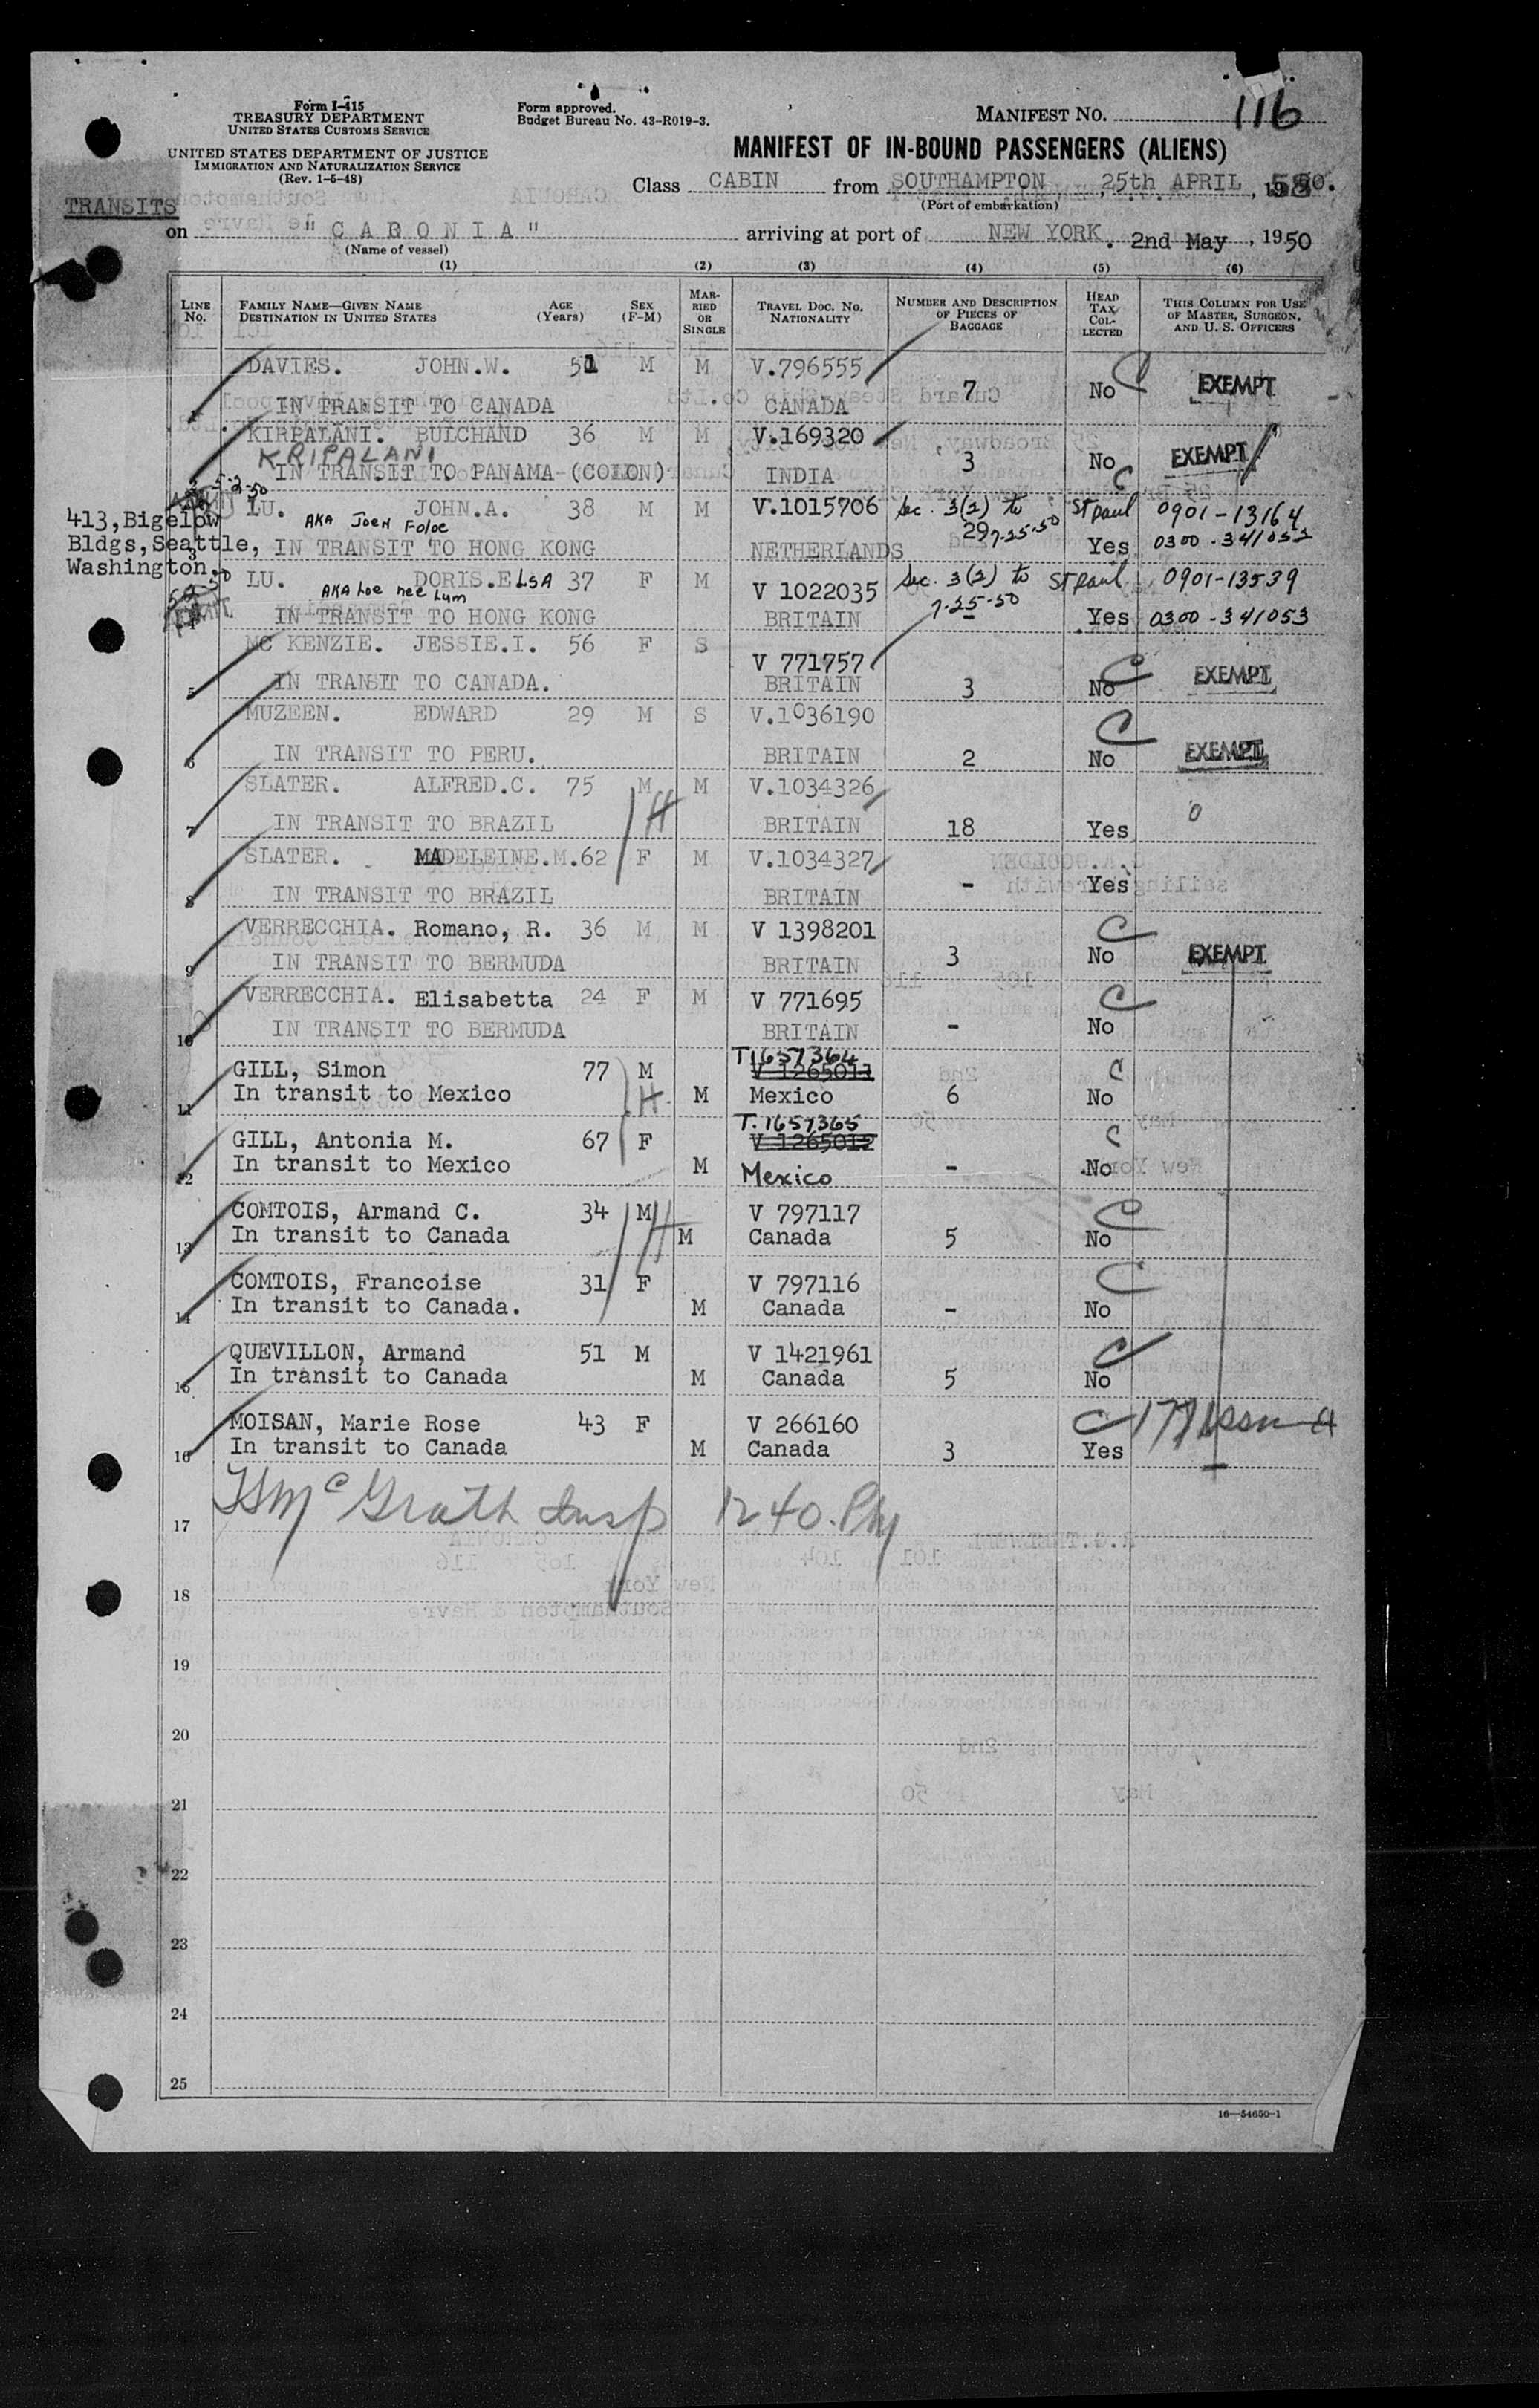 Form I-415
TREASURY DEPARTMENT
UNITED STATES CUSTOMS SERVICE
UNITED STATES DEPARTMENT OF JUSTICE
IMMIGRATION AND NATURALIZATION SERVICE
(Rev. 1-5-48)
Form approved.
Budget Bureau No. 43-R019-3.
MANIFEST NO. 116
MANIFEST OF IN-BOUND PASSENGERS (ALIENS)
TRANSITS
Class CABIN from SOUTHAMPTON, 25th APRIL, 1950.
(Port of embarkation)
on "CARONIA" arriving at port of NEW YORK. 2nd May, 1950
(Name of vessel)
(1) (2) (3) (4) (5) (6)
LINE No. FAMILY NAME—GIVEN NAME DESTINATION IN UNITED STATES AGE (Years) SEX (F-M) MARRIED OR SINGLE TRAVEL DOC. NO. NATIONALITY NUMBER AND DESCRIPTION OF PIECES OF BAGGAGE HEAD TAX COLLECTED THIS COLUMN FOR USE OF MASTER, SURGEON, AND U. S. OFFICERS
DAVIES. JOHN.W. 51 M M V.796555 7 No C EXEMPT
1 IN TRANSIT TO CANADA CANADA
KIRPALANI. BULCHAND 36 M M V.169320 3 No C EXEMPT
KRIPALANI
IN TRANSIT TO PANAMA (COLON) INDIA
5-2-50
413, Bigelow
Bldgs, Seattle,
Washington.
LU. JOHN.A. 38 M M V.1015706 Sec. 3(2) to St Paul 0901-13164
AKA Joen Foloe 29 7-25-50
3 IN TRANSIT TO HONG KONG NETHERLANDS Yes 0300-341052
LU. DORIS.ELSA 37 F M V 1022035 Sec. 3(2) to St Paul 0901-13539
AKA Loe nee Lum 7-25-50
4 IN TRANSIT TO HONG KONG BRITAIN - Yes 0300-341053
MC KENZIE. JESSIE.I. 56 F S V 771757 C EXEMPT
5 IN TRANSIT TO CANADA. BRITAIN 3 No
MUZEEN. EDWARD 29 M S V.1036190 C EXEMPT
6 IN TRANSIT TO PERU. BRITAIN 2 No
SLATER. ALFRED.C. 75 M M V.1034326 0
7 IN TRANSIT TO BRAZIL H BRITAIN 18 Yes
SLATER. MADELEINE.M. 62 F M V.1034327 - Yes
8 IN TRANSIT TO BRAZIL BRITAIN
VERRECCHIA. Romano, R. 36 M M V 1398201 3 No C EXEMPT
9 IN TRANSIT TO BERMUDA BRITAIN
VERRECCHIA. Elisabetta 24 F M V 771695 - No C
10 IN TRANSIT TO BERMUDA BRITAIN
T1657364
GILL, Simon 77 M V 1265011 C
11 In transit to Mexico H M Mexico 6 No
T.1657365
GILL, Antonia M. 67 F V 1265012 C
12 In transit to Mexico M Mexico - No
COMTOIS, Armand C. 34 M V 797117 C
13 In transit to Canada H M Canada 5 No
COMTOIS, Francoise 31 F V 797116 C
14 In transit to Canada. M Canada - No
QUEVILLON, Armand 51 M V 1421961 C
15 In transit to Canada M Canada 5 No
MOISAN, Marie Rose 43 F V 266160 C
16 In transit to Canada M Canada 3 Yes
17 McGrath Insp 12 40. PM
18
19
20
21
22
23
24
25
16—54650-1